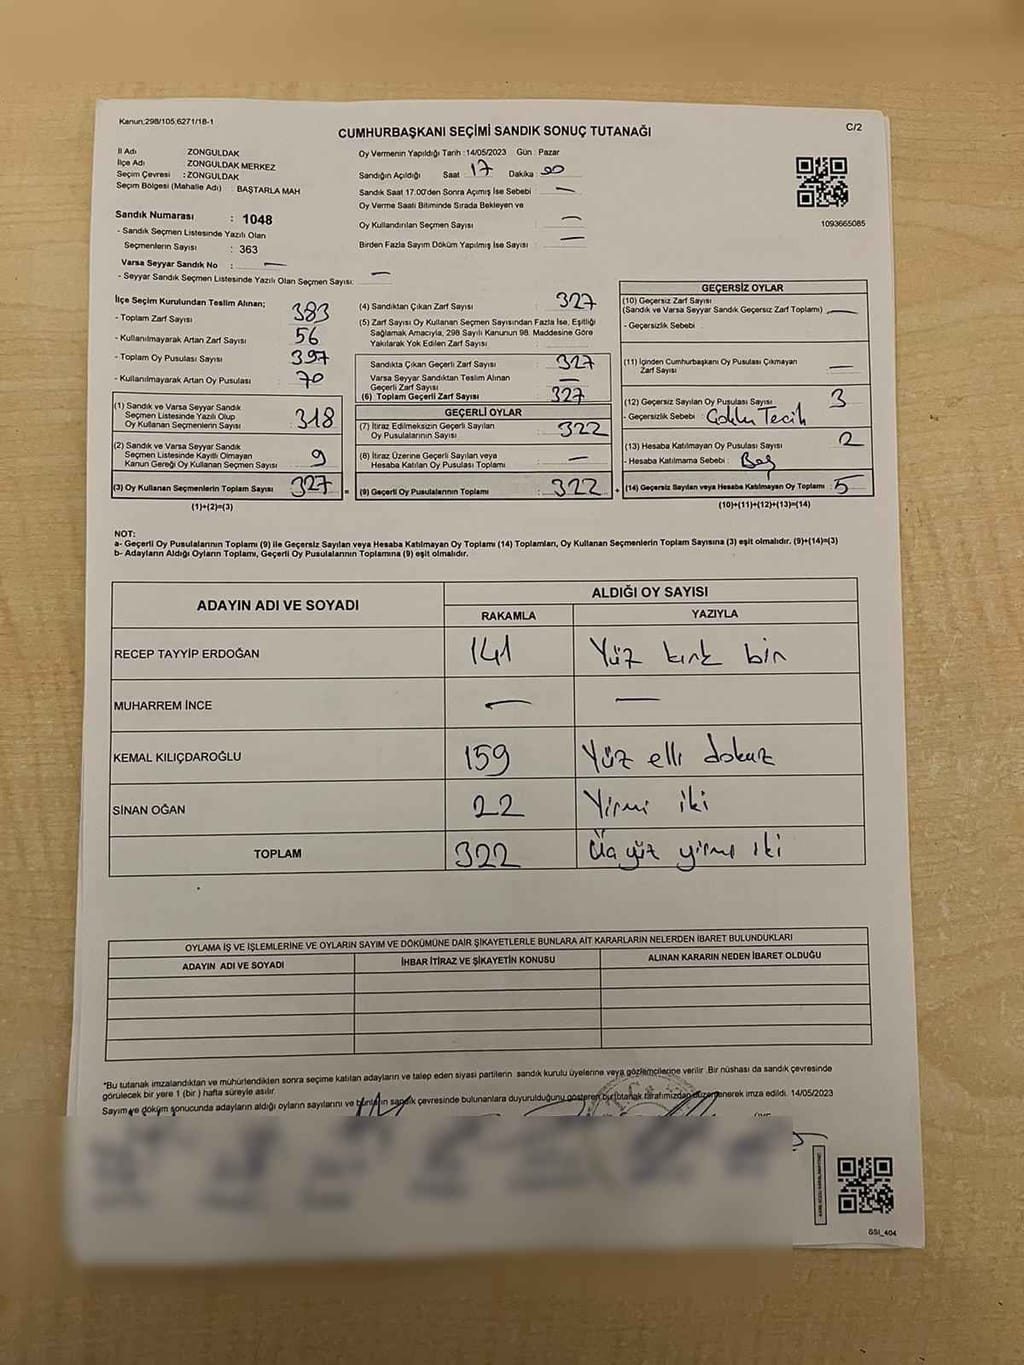 Kanun;298/105,6271/18-1
CUMHURBAŞKANI SEÇİMİ SANDIK SONUÇ TUTANAĞI
C/2
İl Adı ZONGULDAK
İlçe Adı ZONGULDAK MERKEZ
Seçim Çevresi : ZONGULDAK
Seçim Bölgesi (Mahalle Adı) : BAŞTARLA MAH
Sandık Numarası : 1048
- Sandık Seçmen Listesinde Yazılı Olan
Seçmenlerin Sayısı : 363
Varsa Seyyar Sandık No : —
- Seyyar Sandık Seçmen Listesinde Yazılı Olan Seçmen Sayısı: —
Oy Vermenin Yapıldığı Tarih : 14/05/2023 Gün : Pazar
Sandığın Açıldığı Saat 17 Dakika 00
Sandık Saat 17.00'den Sonra Açımış İse Sebebi : —
Oy Verme Saati Bitiminde Sırada Bekleyen ve
Oy Kullandırılan Seçmen Sayısı : —
Birden Fazla Sayım Döküm Yapılmış İse Sayısı : —
1093665085
İlçe Seçim Kurulundan Teslim Alınan;
- Toplam Zarf Sayısı : 383
- Kullanılmayarak Artan Zarf Sayısı : 56
- Toplam Oy Pusulası Sayısı : 397
- Kullanılmayarak Artan Oy Pusulası : 70
(1) Sandık ve Varsa Seyyar Sandık
Seçmen Listesinde Yazılı Olup
Oy Kullanan Seçmenlerin Sayısı : 318
(2) Sandık ve Varsa Seyyar Sandık
Seçmen Listesinde Kayıtlı Olmayan
Kanun Gereği Oy Kullanan Seçmen Sayısı : 9
(3) Oy Kullanan Seçmenlerin Toplam Sayısı : 327 =
(1)+(2)=(3)
(4) Sandıktan Çıkan Zarf Sayısı : 327
(5) Zarf Sayısı Oy Kullanan Seçmen Sayısından Fazla İse, Eşitliği
Sağlamak Amacıyla, 298 Sayılı Kanunun 98. Maddesine Göre
Yakılarak Yok Edilen Zarf Sayısı :
Sandıkta Çıkan Geçerli Zarf Sayısı : 327
Varsa Seyyar Sandıktan Teslim Alınan
Geçerli Zarf Sayısı : —
(6) Toplam Geçerli Zarf Sayısı : 327
GEÇERLİ OYLAR
(7) İtiraz Edilmeksizin Geçerli Sayılan
Oy Pusulalarının Sayısı : 322
(8) İtiraz Üzerine Geçerli Sayılan veya
Hesaba Katılan Oy Pusulası Toplamı : —
(9) Geçerli Oy Pusulalarının Toplamı : 322 +
GEÇERSİZ OYLAR
(10) Geçersiz Zarf Sayısı
(Sandık ve Varsa Seyyar Sandık Geçersiz Zarf Toplamı) : —
- Geçersizlik Sebebi :
(11) İçinden Cumhurbaşkanı Oy Pusulası Çıkmayan
Zarf Sayısı : —
(12) Geçersiz Sayılan Oy Pusulası Sayısı : 3
- Geçersizlik Sebebi : Çoklu Tecih
(13) Hesaba Katılmayan Oy Pusulası Sayısı : 2
- Hesaba Katılmama Sebebi : Boş
(14) Geçersiz Sayılan veya Hesaba Katılmayan Oy Toplamı : 5
(10)+(11)+(12)+(13)=(14)
NOT:
a- Geçerli Oy Pusulalarının Toplamı (9) ile Geçersiz Sayılan veya Hesaba Katılmayan Oy Toplamı (14) Toplamları, Oy Kullanan Seçmenlerin Toplam Sayısına (3) eşit olmalıdır. (9)+(14)=(3)
b- Adayların Aldığı Oyların Toplamı, Geçerli Oy Pusulalarının Toplamına (9) eşit olmalıdır.
ADAYIN ADI VE SOYADI
ALDIĞI OY SAYISI
RAKAMLA YAZIYLA
RECEP TAYYİP ERDOĞAN 141 Yüz kırk bir
MUHARREM İNCE — —
KEMAL KILIÇDAROĞLU 159 Yüz elli dokuz
SİNAN OĞAN 22 Yirmi iki
TOPLAM 322 Üç yüz yirmi iki
OYLAMA İŞ VE İŞLEMLERİNE VE OYLARIN SAYIM VE DÖKÜMÜNE DAİR ŞİKAYETLERLE BUNLARA AİT KARARLARIN NELERDEN İBARET BULUNDUKLARI
ADAYIN ADI VE SOYADI İHBAR İTİRAZ VE ŞİKAYETİN KONUSU ALINAN KARARIN NEDEN İBARET OLDUĞU
*Bu tutanak imzalandıktan ve mühürlendikten sonra seçime katılan adayların ve talep eden siyasi partilerin sandık kurulu üyelerine veya gözlemcilerine verilir .Bir nüshası da sandık çevresinde
görülecek bir yere 1 (bir ) hafta süreyle asılır.
Sayım ve döküm sonucunda adayların aldığı oyların sayılarını ve bunların sandık çevresinde bulunanlara duyurulduğunu gösteren bu tutanak tarafımızdan düzenlenerek imza edildi. 14/05/2023
GSI_404